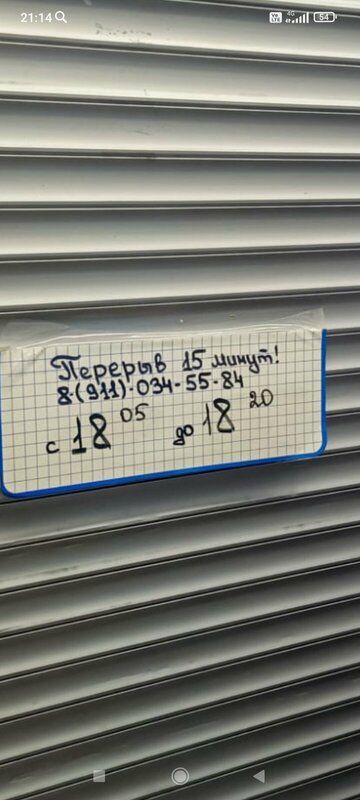 21:14
Vo LTE 4G 54
Перерыв 15 минут!
8(911)-034-55-84
с 18 05 до 18 20